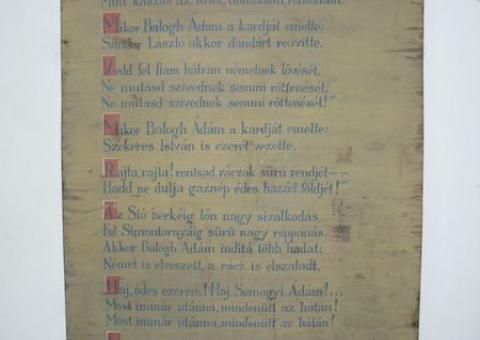 Mint kaszás az füvet,
Mikor Balogh Ádám a kardját emelte:
Sándor László akkor dandárt
Vedd fel fiam bátran németnek lövését,
Ne mutasd szivednek semmi röttenését.
Ne mutasd szivednek semmi röttenését!"
Mikor Balogh Ádám a kardját emelte:
Szekeres István is ezerét vezette.
Rajta, rajta! rontsad ráczak sűrű rendjét--
Hadd ne dulja gaznép édes hazád földjét!
Az Sió berkéig lőn nagy sivalkodás,
Fel Simontornyáig sürü nagy roppanás.
Akkor Balogh Ádám inditá több hadat:
Német is elveszett, a rácz is elszaladt.
Haj, édes ezerem! Haj, Somogyi Ádám!...
Most immár utánna, mindenütt az hátán!
Most immár utánna, mindenütt az hátán!